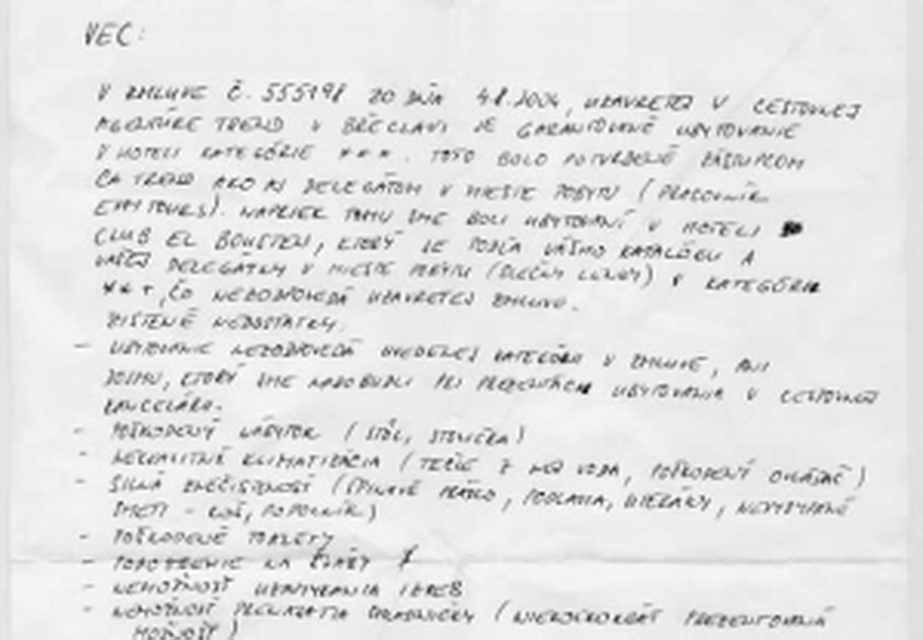 VEC:
V ZMLUVE Č. 555198 ZO DŇA 4.8.2004, UZAVRETEJ V CESTOVNEJ
AGENTÚRE TREND V BŘECLAVI JE GARANTOVANÉ UBYTOVANIE
V HOTELI KATEGÓRIE ***. TOTO BOLO POTVRDENÉ ZÁSTUPCOM
CA TREND AKO AJ DELEGÁTOM V MIESTE POBYTU (PRACOVNÍK
EXIM TOURS). NAPRIEK TOMU SME BOLI UBYTOVANÍ V HOTELI
CLUB EL BOUSTEN, KTORÝ JE PODĽA VÁŠHO KATALÓGU A
VAŠEJ DELEGÁTKY V MIESTE POBYTU (SLEČNY) V KATEGÓRII
**+, ČO NEZODPOVEDÁ UZAVRETEJ ZMLUVE.
ZISTENÉ NEDOSTATKY:
- UBYTOVANIE NEZODPOVEDÁ UVEDENEJ KATEGÓRII V ZMLUVE, ANI
DOJMU, KTORÝ SME NADOBUDLI PRI PREZENTÁCII UBYTOVANIA V CESTOVNEJ
KANCELÁRII.
- POŠKODENÝ NÁBYTOK (STÔL, STOLIČKA)
- NEKVALITNÁ KLIMATIZÁCIA (TEČIE Z NEJ VODA, POŠKODENÝ OVLÁDAČ)
- SILNÁ ZNEČISTENOSŤ (ŠPINAVÉ PRÁDLO, PODLAHA, UTERÁKY, NEVYSYPANÉ
SMETI - KOŠ, POPOLNÍK)
- POŠKODENÉ TOALETY
- POPOTŔBENIE NA PLÁŽI
- NEMOŽNOSŤ UZAMYKANIA IZIEB
- NEMOŽNOSŤ (NIEKOĽKOKRÁT PREZENTOVANÁ
MOŽNOSŤ)